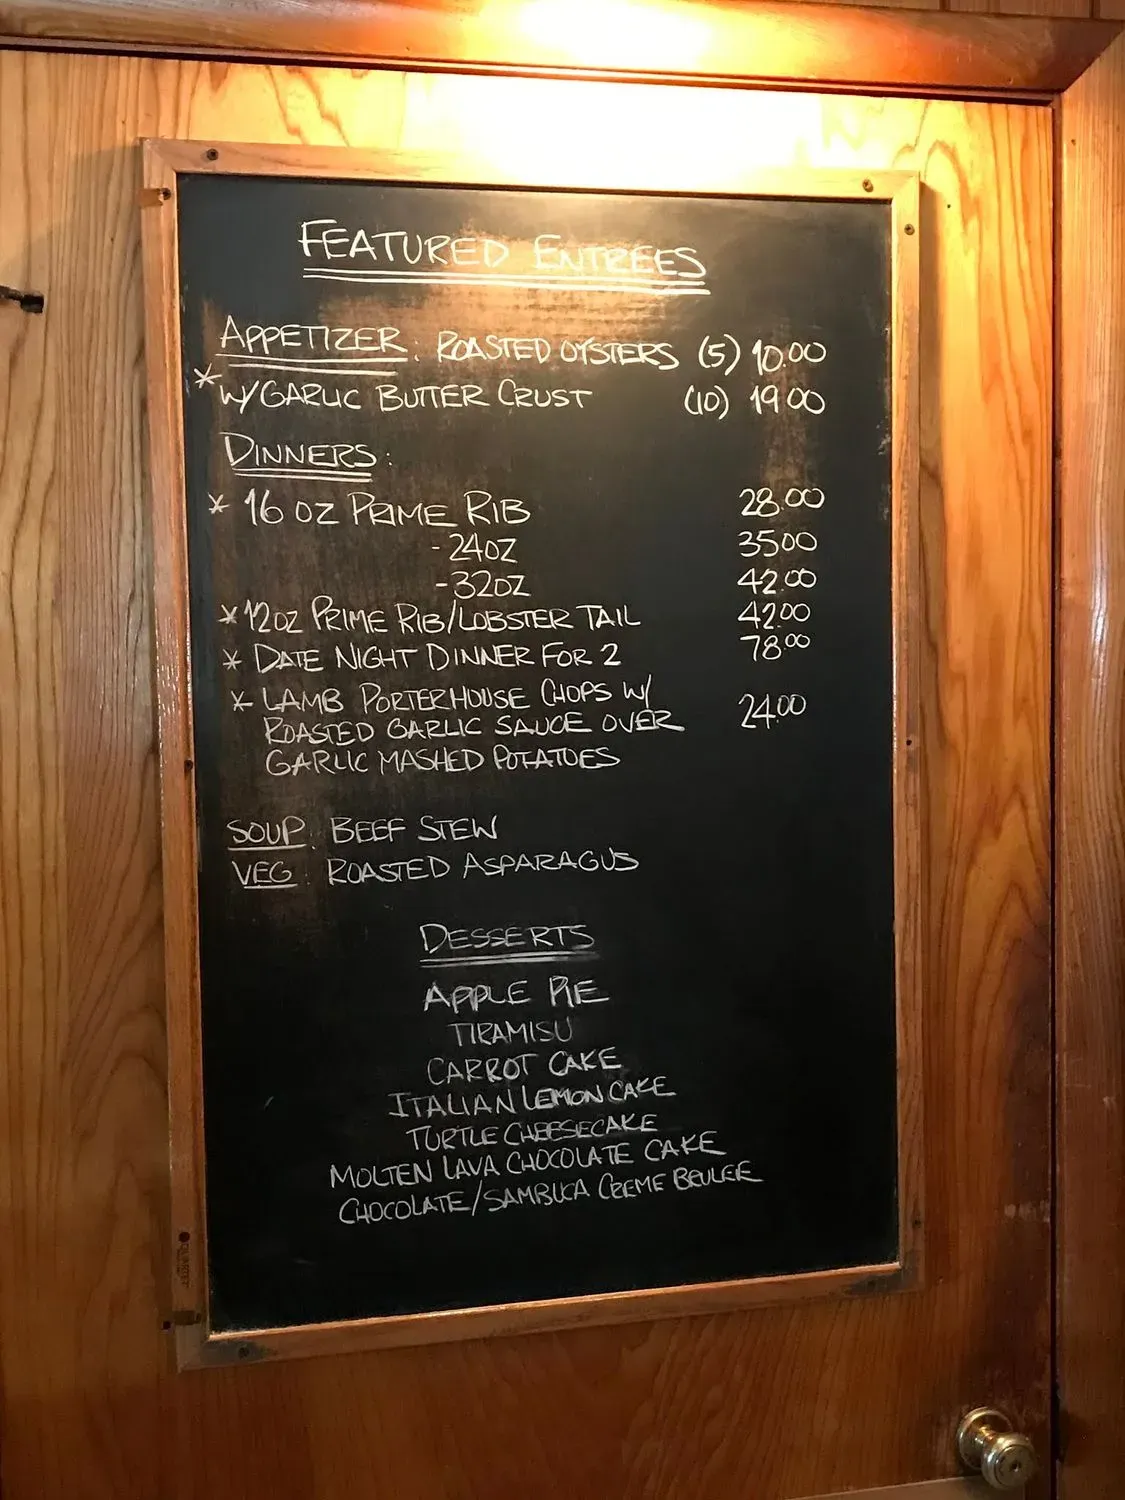 FEATURED ENTREES
APPETIZER: ROASTED OYSTERS (5) 10.00
* W/GARLIC BUTTER CRUST (10) 19.00
DINNERS:
* 16 OZ PRIME RIB 28.00
- 24OZ 35.00
- 32OZ 42.00
* 12OZ PRIME RIB/LOBSTER TAIL 42.00
* DATE NIGHT DINNER FOR 2 78.00
* LAMB PORTERHOUSE CHOPS W/
ROASTED GARLIC SAUCE OVER 24.00
GARLIC MASHED POTATOES
SOUP: BEEF STEW
VEG: ROASTED ASPARAGUS
DESSERTS
APPLE PIE
TIRAMISU
CARROT CAKE
ITALIAN LEMON CAKE
TURTLE CHEESECAKE
MOLTEN LAVA CHOCOLATE CAKE
CHOCOLATE/SAMBUCA CREME BRULEE
QUARTET